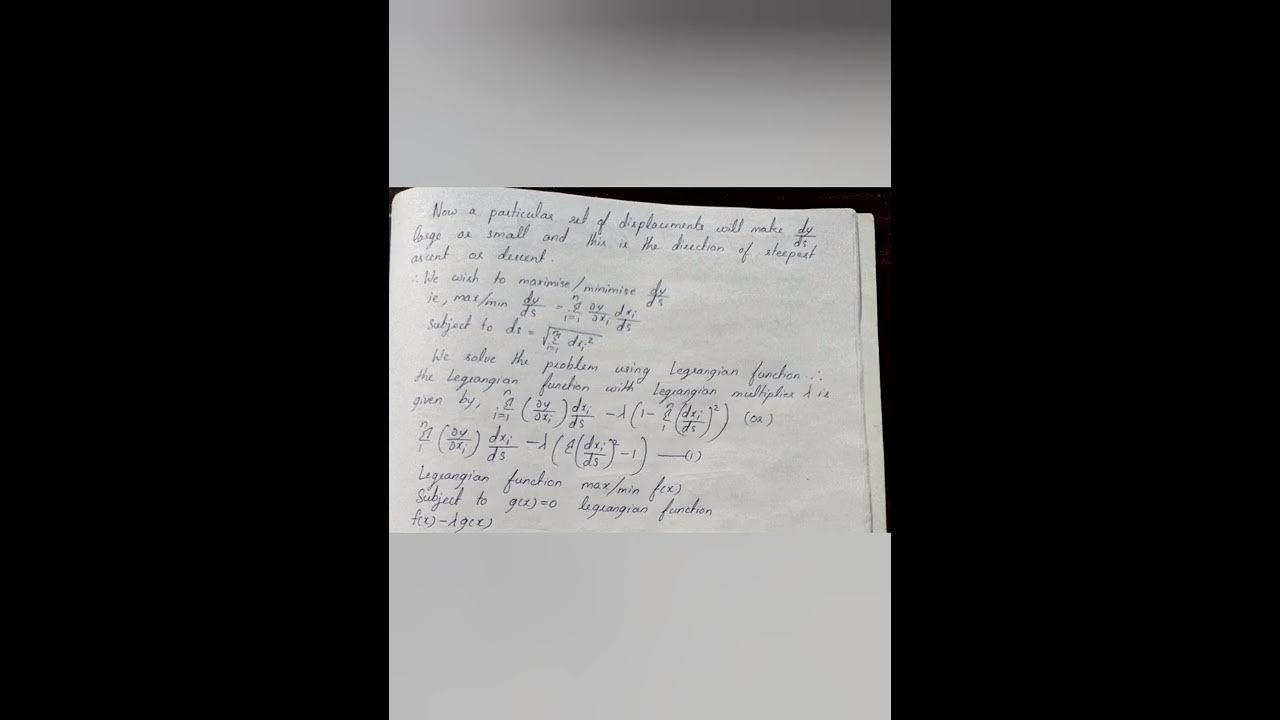 Now a particular set of displacements will make dy/ds
large or small and this is the direction of steepest
ascent or descent.
∴ We wish to maximise/minimise dy/ds
ie, max/min dy/ds = Σ_{i=1}^{n} ∂y/∂x_i dx_i/ds
subject to ds = √(Σ_{i=1}^{n} dx_i²)
We solve the problem using Legrangian function ∴
the Legrangian function with Legrangian multiplier λ is
given by, Σ_{i=1}^{n} (∂y/∂x_i) dx_i/ds - λ(1 - Σ_{1}^{n} (dx_i/ds)²) (OR)
Σ_{1}^{n} (∂y/∂x_i) dx_i/ds - λ(Σ(dx_i/ds)² - 1) —(1)
Legrangian function max/min f(x)
Subject to g(x)=0 legrangian function
f(x) - λg(x)